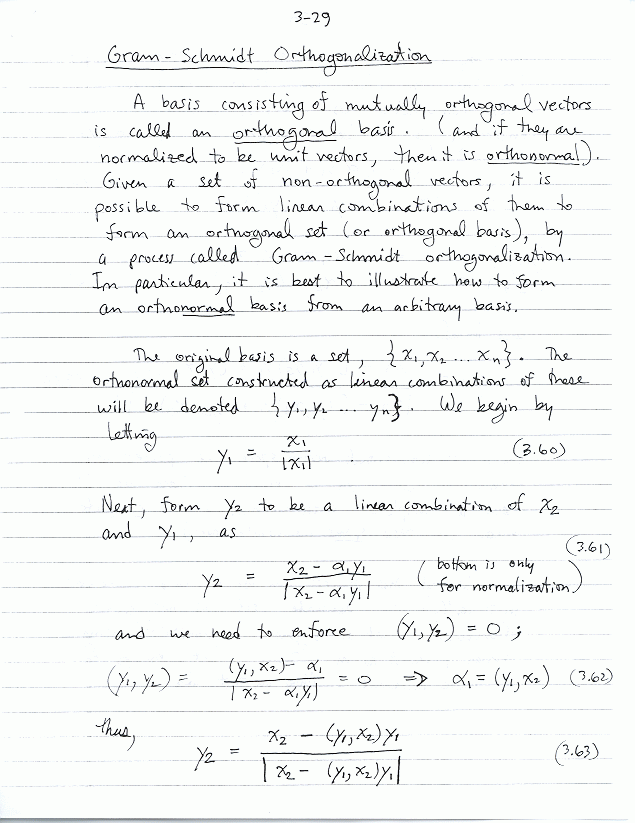 3-29
Gram-Schmidt Orthogonalization
A basis consisting of mutually orthogonal vectors
is called an orthogonal basis. (and if they are
normalized to be unit vectors, then it is orthonormal).
Given a set of non-orthogonal vectors, it is
possible to form linear combinations of them to
form an orthogonal set (or orthogonal basis), by
a process called Gram-Schmidt orthogonalization.
In particular, it is best to illustrate how to form
an orthonormal basis from an arbitrary basis.
The original basis is a set, {x₁, x₂ ... xₙ}. The
orthonormal set constructed as linear combinations of these
will be denoted {y₁, y₂ ... yₙ}. We begin by
letting
y₁ = x₁ / |x₁| (3.60)
Next, form y₂ to be a linear combination of x₂
and y₁, as
(3.61)
y₂ = (x₂ - α₁y₁) / |x₂ - α₁y₁| (bottom is only for normalization)
and we need to enforce (y₁, y₂) = 0 ;
(y₁, y₂) = ((y₁, x₂) - α₁) / |x₂ - α₁y₁| = 0 ⇒ α₁ = (y₁, x₂) (3.62)
thus,
y₂ = (x₂ - (y₁, x₂) y₁) / |x₂ - (y₁, x₂) y₁| (3.63)